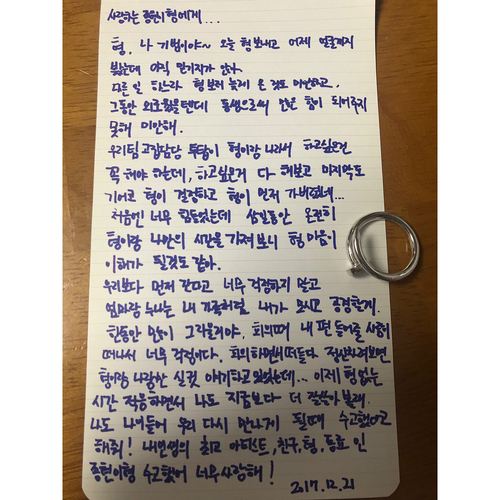 사랑하는 종현이형에게...
형, 나 기범이야~ 오늘 형 보내고 어제 얼굴까지
봤는데 아직 믿기지가 않아.
다른 일 하느라 형 보러 늦게 온 것도 미안하고,
그동안 외로웠을텐데 동생으로써 많은 힘이 되어주지
못해 미안해.
우리팀 고집담당 투탑이 형이랑 나라서 하고싶은건
꼭 해야 하는데, 하고싶은거 다 해보고 마지막도
기어코 형이 결정하고 형이 먼저 가버렸네...
처음엔 너무 힘들었는데 삼일동안 온전히
형이랑 나만의 시간을 가져보니 형 마음이
이해가 될것도 같아.
우리보다 먼저 갔다고 너무 걱정하지 말고
엄마랑 누나는 내 가족처럼 내가 모시고 공경할게.
한동안 많이 그리울거야. 회의때 내 편 들어줄 사람이
떠나서 너무 걱정이다. 회의하면서 떠들다 정신차려보면
형이랑 나랑만 실컷 얘기하고 있었는데... 이제 형 없는
시간 적응하면서 나도 지금보다 더 잘 살아 볼래.
나도 나이들어 우리 다시 만나게 될때 수고했다고
해줘! 내 인생의 최고 아티스트, 친구, 형, 동료 인
종현이형 수고했어 너무 사랑해!
2017.12.21